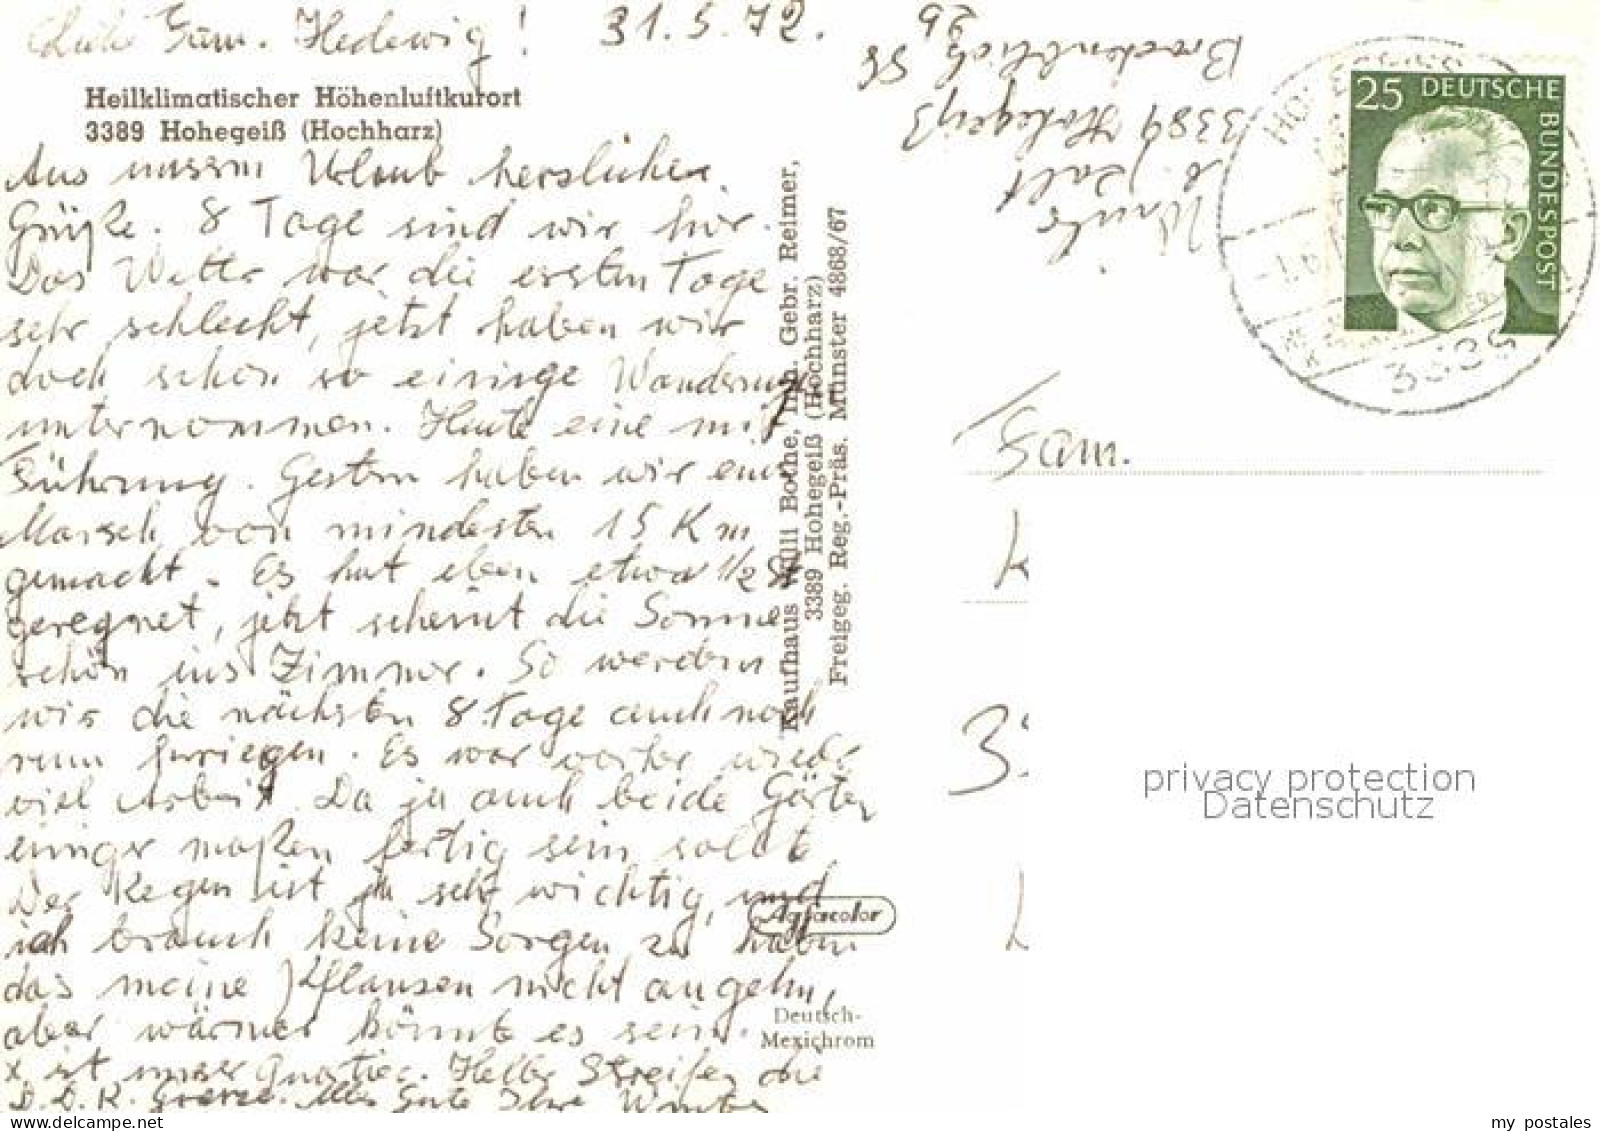 Liebe Fam. Hedewig! 31.5.72.
Heilklimatischer Höhenluftkurort
3389 Hohegeiß (Hochharz)
Aus unserm Urlaub herzliche
Grüße. 8 Tage sind wir hier.
Das Wetter war die ersten Tage
sehr schlecht, jetzt haben wir
doch schon so einige Wanderung
unternommen. Heute eine mit
Führung. Gestern haben wir ein
Marsch von mindesten 15 Km
gemacht. Es hat eben etwa 1/2 St
geregnet, jetzt scheint die Sonne
schön ins Zimmer. So werden
wir die nächsten 8 Tage auch noch
rum kriegen. Es war vorher wieder
viel Arbeit. Da ja auch beide Gärten
einiger maßen fertig sein sollte
Der Regen ist ja sehr wichtig, und
ich brauch keine Sorgen zu haben
das meine Pflanzen nicht angehn,
aber wärmer könnte es sein.
x ist unser Quartier. Heller Streifen die
D.D.R. Grenze. Alles Gute Ihre
Kaufhaus Willi Bothe, Inh. Gebr. Reimer,
3389 Hohegeiß (Hochharz)
Freigeg. Reg.-Präs. Münster 4868/67
Agfacolor
Deutsch-
Mexichrom
3389 Hohegeiß
Brockenblick
25 DEUTSCHE
BUNDESPOST
Fam.
K
L
privacy protection
Datenschutz
my postales